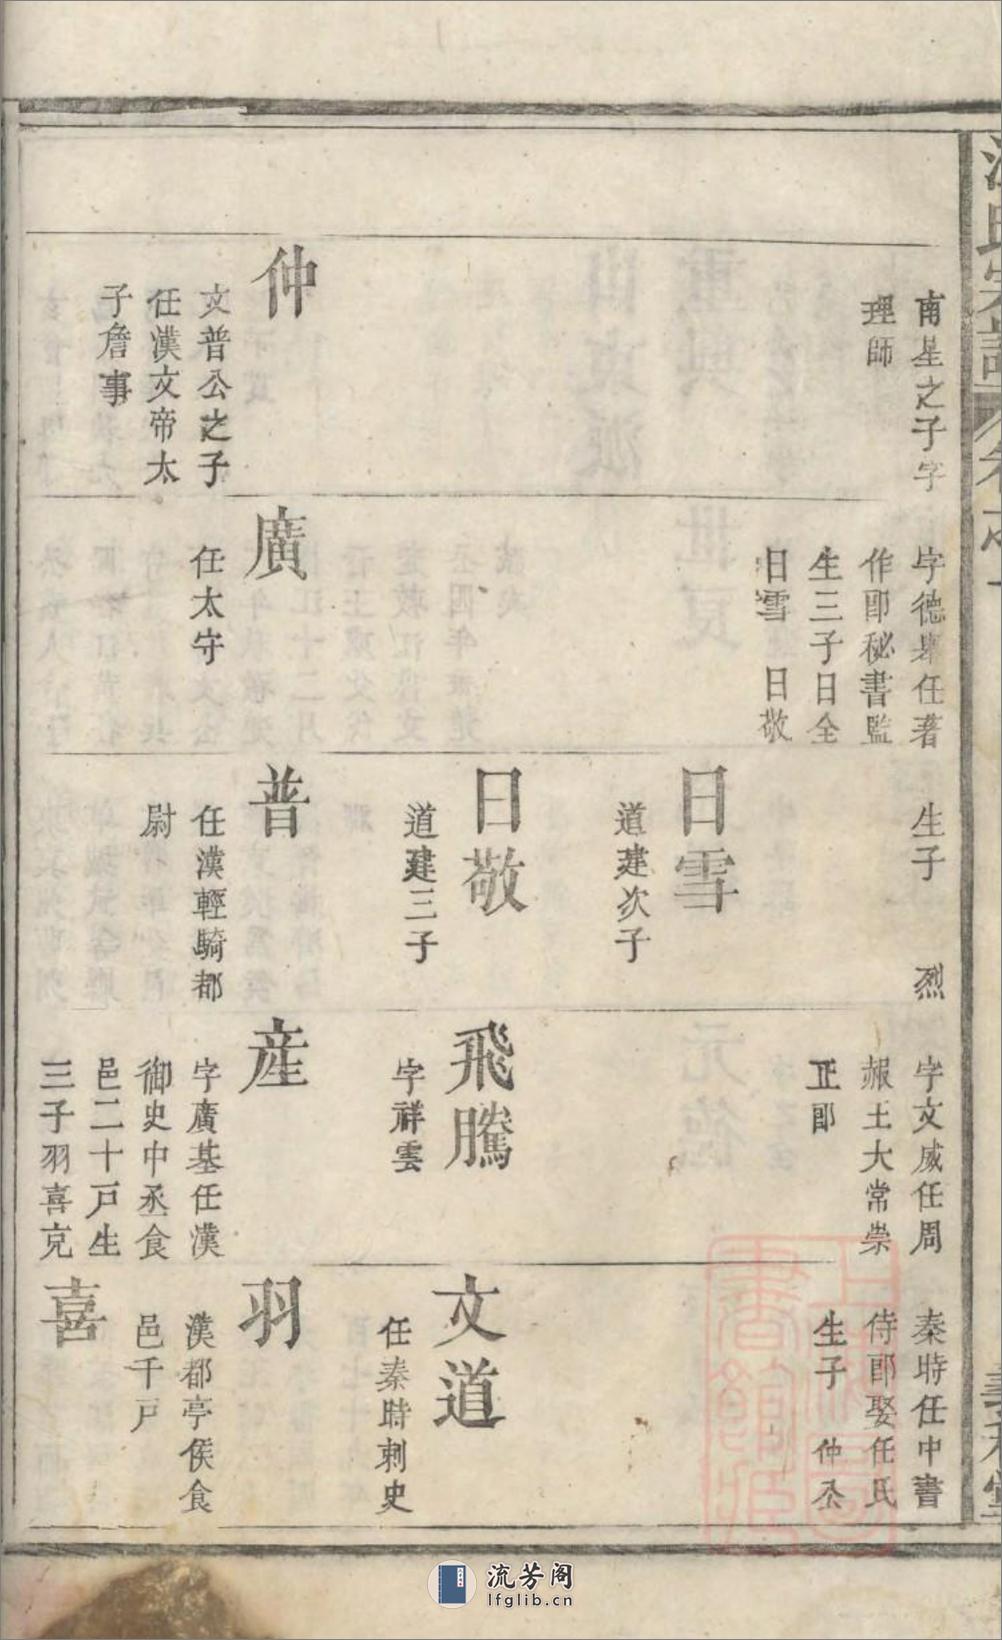 南星之子字
理師
仲
文普公之子
任漢文帝太
子詹事
字德㬅任著
作郎秘書監
生三子日全
日雪 日敬
廣
任太守
生子 烈
日雪
道建次子
日敬
道建三子
普
任漢輕騎都
尉
字文威任周
赧王大常崇
正郎
飛騰
字祥雲
產
字廣基任漢
御史中丞食
邑二十戸生
三子羽喜克
秦時任中書
侍郎娶任氏
生子 仲
文道
任秦時刺史
羽
漢都亭侯食
邑千戸
喜
氏宗譜
義和堂
上海圖
書館藏
流芳阁
lfglib.cn